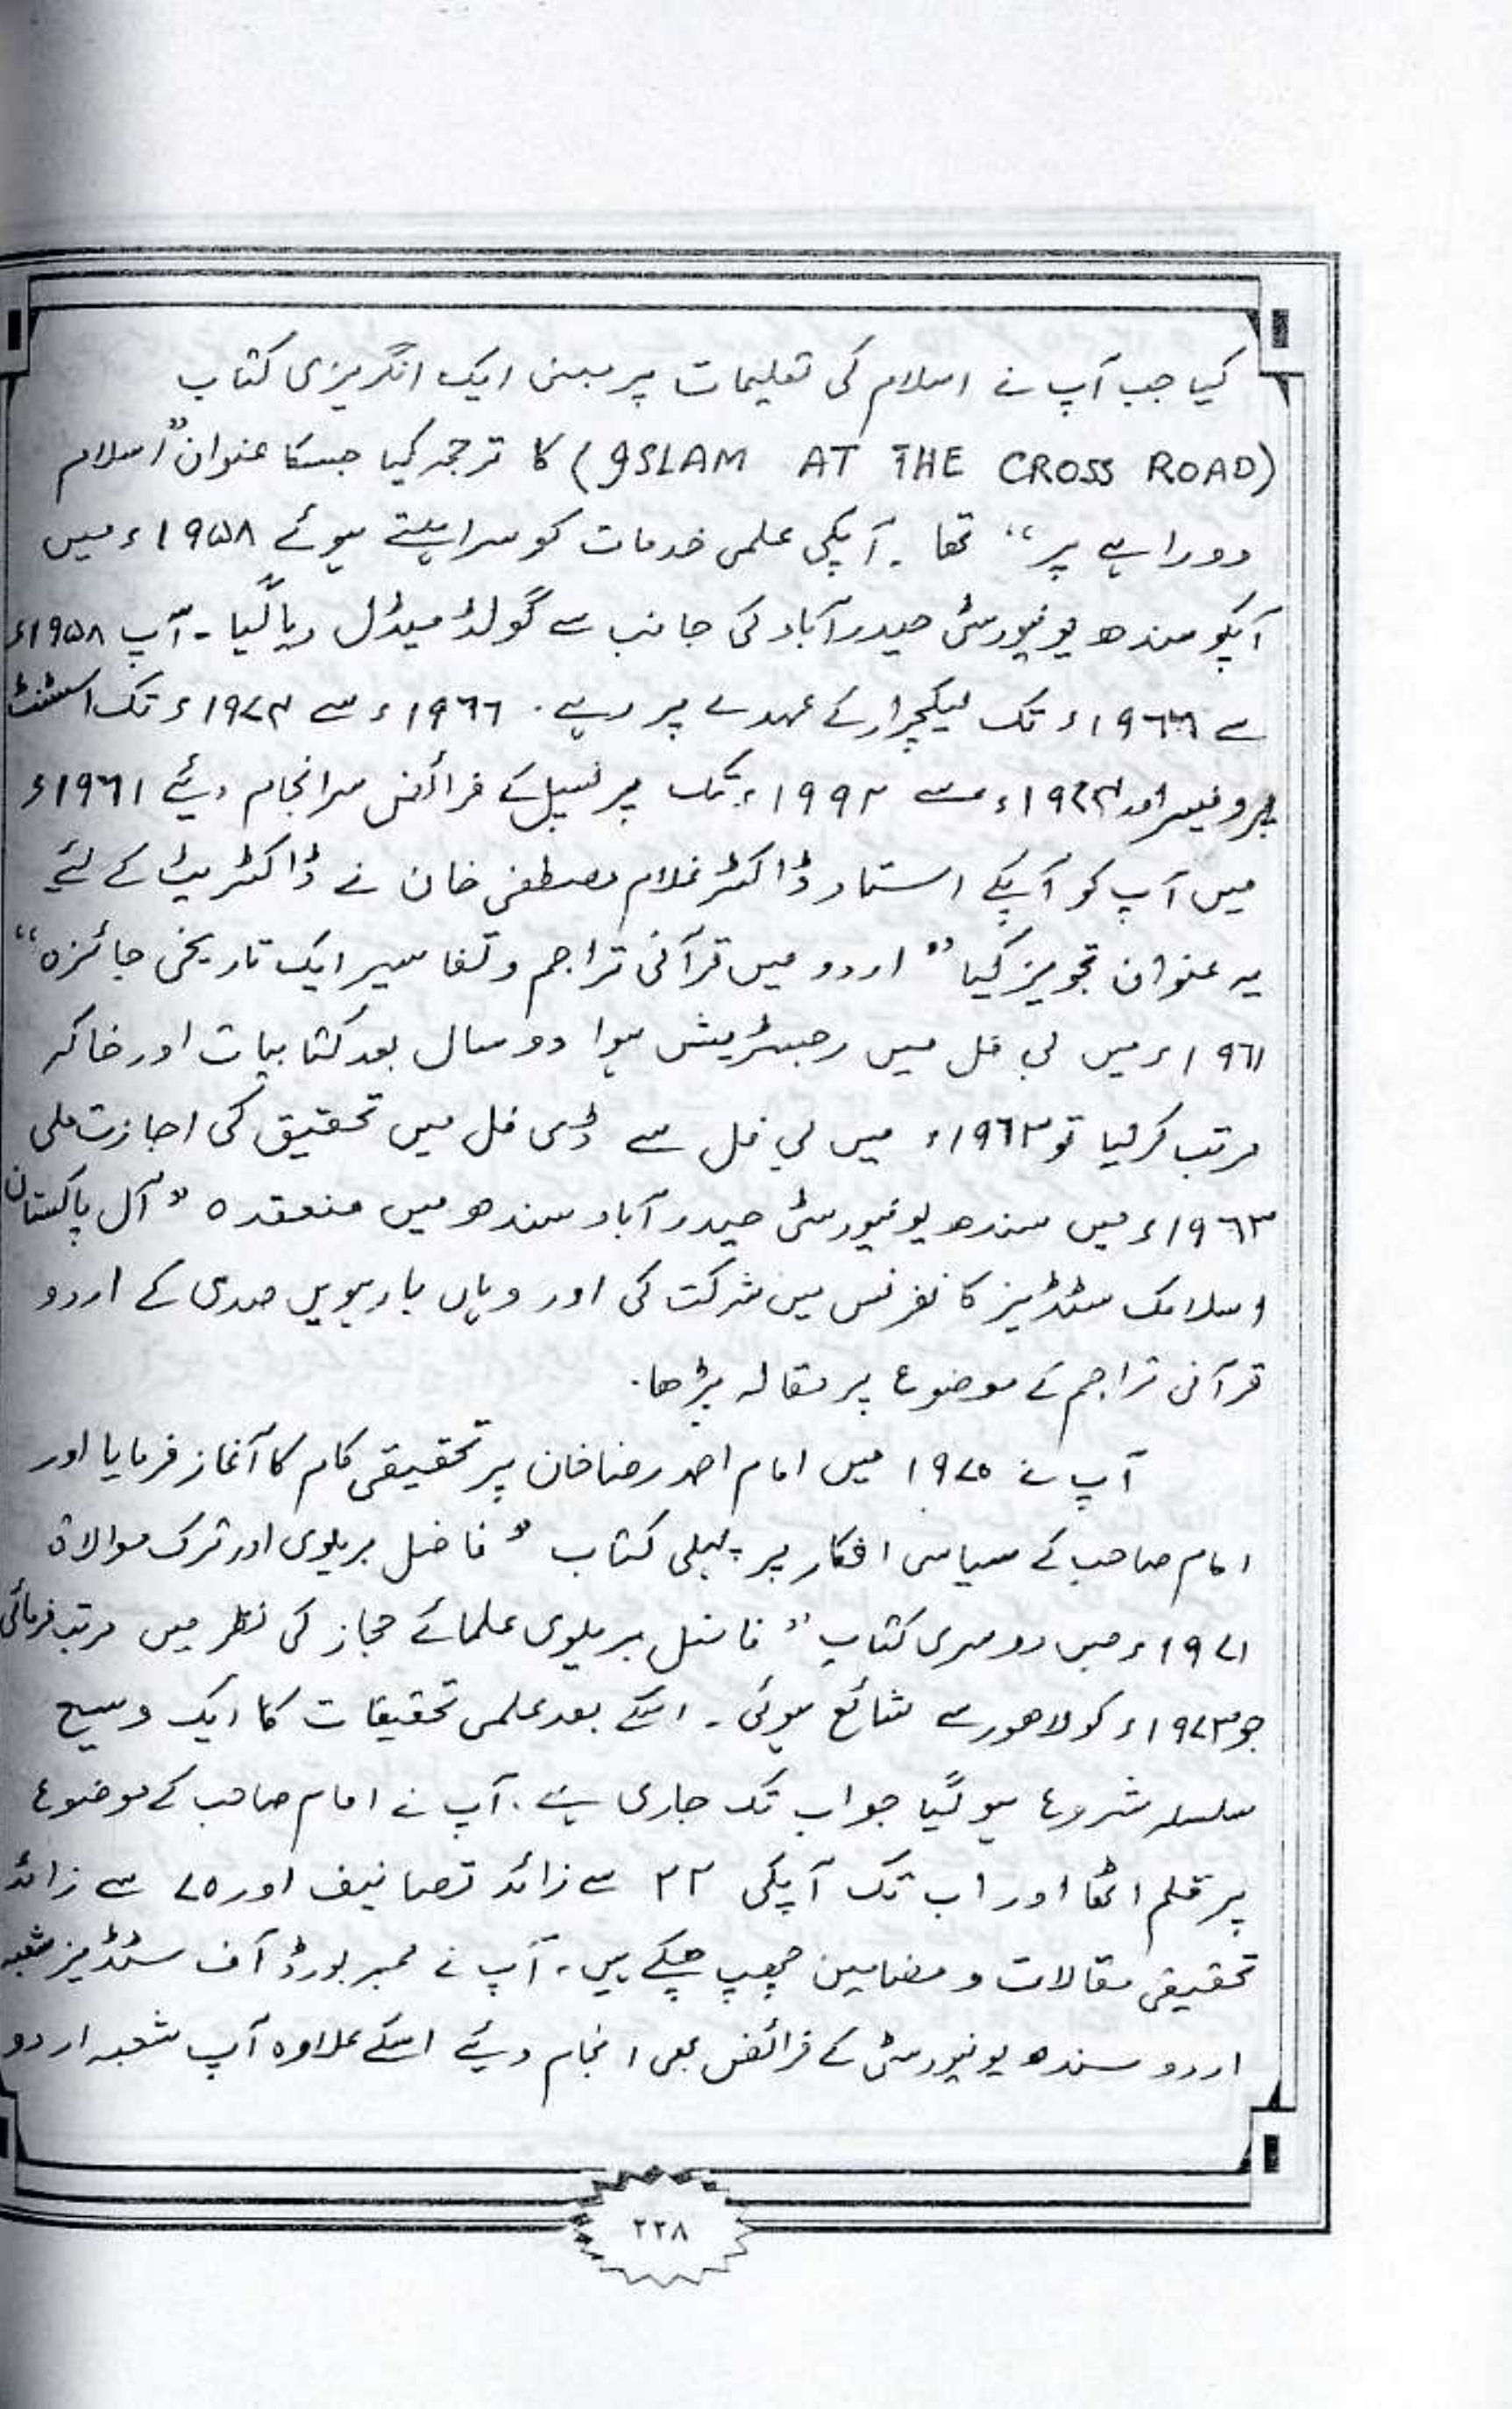 کیا جب آپ نے اسلام کی تعلیمات پر مبنی ایک انگریزی کتاب
(ISLAM AT THE CROSS ROAD) کا ترجمہ کیا جسکا عنوان "اسلام
دوراہے پر" تھا ۔ آپکی علمی خدمات کو سراہتے ہوئے ۱۹۵۸ء میں
آپکو سندھ یونیورسٹی حیدرآباد کی جانب سے گولڈ میڈل دیا گیا ۔ آپ ۱۹۵۸ء
سے ۱۹۶۶ء تک لیکچرار کے عہدے پر رہے ۔ ۱۹۶۶ء سے ۱۹۷۴ء تک اسسٹنٹ
پروفیسر اور ۱۹۷۴ء سے ۱۹۹۲ء تک پرنسپل کے فرائض سرانجام دیئے ۱۹۶۱ء
میں آپ کو آپکے استاد ڈاکٹر غلام مصطفی خان نے ڈاکٹریٹ کے لئے
یہ عنوان تجویز کیا "اردو میں قرآنی تراجم و تفاسیر ایک تاریخی جائزہ"
۱۹۶۱ء میں پی فل میں رجسٹریشن ہوا دو سال بعد کتابیات اور خاکہ
مرتب کر لیا تو ۱۹۶۳ء میں پی فل سے ڈی فل میں تحقیق کی اجازت ملی
۱۹۶۳ء میں سندھ یونیورسٹی حیدرآباد سندھ میں منعقدہ "آل پاکستان
اسلامک سٹڈیز کانفرنس میں شرکت کی اور وہاں بارہویں صدی کے اردو
قرآنی تراجم کے موضوع پر مقالہ پڑھا ۔
آپ نے ۱۹۷۰ میں امام احمد رضا خان پر تحقیقی کام کا آغاز فرمایا اور
امام صاحب کے سیاسی افکار پر پہلی کتاب "فاضل بریلوی اور ترک موالاۃ
۱۹۷۱ء میں دوسری کتاب "فاضل بریلوی علمائے حجاز کی نظر میں مرتب فرمائی
جو ۱۹۷۳ء کو لاھور سے شائع ہوئی ۔ اسکے بعد علمی تحقیقات کا ایک وسیع
سلسلہ شروع ہو گیا جو اب تک جاری ہے ۔ آپ نے امام صاحب کے موضوع
پر قلم اٹھا اور اب تک آپکی ۲۳ سے زائد تصانیف اور ۷۰ سے زائد
تحقیقی مقالات و مضامین چھپ چکے ہیں ۔ آپ نے ممبر بورڈ آف سٹڈیز شعبہ
اردو سندھ یونیورسٹی کے فرائض بھی انجام دیئے اسکے علاوہ آپ شعبہ اردو
۲۲۸